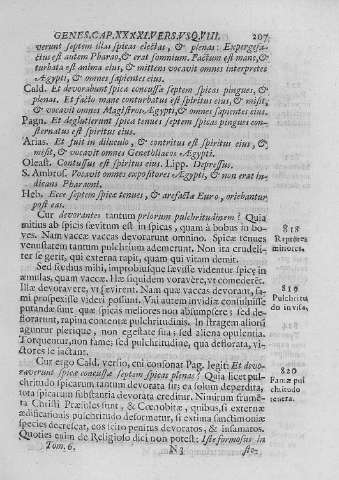 GENES. CAP. XXXXI. VERS. VSQ. VIII. 207
verunt septem illas spicas electas, & plenas: Expergefa-
ctus est autem Pharao, & erat somnium. Factum est mane, &
turbata est anima eius, & mittens vocavit omnes interpretes
Ægypti, & omnes sapientes eius.
Cald. Et devorabunt spicæ concussæ septem spicas pingues, &
plenas. Et facto mane conturbatus est spiritus eius, & misit,
& vocavit omnes Magistros Ægypti, & omnes sapientes eius.
Pagn. Et deglutierunt spicæ tenues septem spicas pingues con-
sternatus est spiritus eius.
Arias. Et fuit in diluculo, & contritus est spiritus eius, &
misit, & vocavit omnes Genethliacos Ægypti.
Oleast. Contusus est spiritus eius. Lipp. Depressus.
S. Ambros. Vocavit omnes expositores Ægypti, & non erat in-
dicans Pharaoni.
Heb. Ecce septem spicæ tenues, & arefactæ Euro, oriebantur
post eas.
Cur devorantes tantum priorum pulchritudinem? Quia
mitius ab spicis sævitum est in spicas, quam à bobus in bo-
ves. Nam vaccæ vaccas devorarunt omnino. Spicæ tenues
venustatem tantum pulchritudinem ademerunt. Non ita crudeli-
ter se gerit, qui externa rapit, quam qui vitam demit.
818
minores.
Sed sœdus mihi, improbiusque sævisse videntur spicæ in
æmulas, quam vaccæ. Hæ siquidem voravere, vt comederēt.
Illæ devoravere, vt sævirent. Nam quæ vaccas devorant, fa-
mi prospexisse videri possunt. Vni autem invidiæ consuluisse
putandæ sunt quæ spicas meliores non absumpsere; sed de-
florarunt, rapina contentæ pulchritudinis. In stragem alienā
aguntur plerique, non egestate sua; sed aliena opulentia.
Torquentur, non fame; sed pulchritudine, qua deflorata, vi-
ctores se iactant.
819
Pulchritu
do invisa,
Cur ergo Cald. versio, cui consonat Pag. legit Et devo-
raverunt spicæ concussæ septem spicas plenas? Quia licet pul-
chritudo spicarum tantum devorata sit; ea solum deperdita,
tota spicarum substantia devorata creditur. Nimirum frumē-
ta Christi Præsules sunt, & Cœnobitæ, quibus, si externæ
ædificationis pulchritudo deformetur, si extima sanctimoniæ
species decrescat, eos scito penitus devoratos, & insumatos.
Quoties enim de Religioso dici non potest: Iste formosus in
820
Famæ pul
chritudo
tenera.
Tom. 6. N 3 sto-